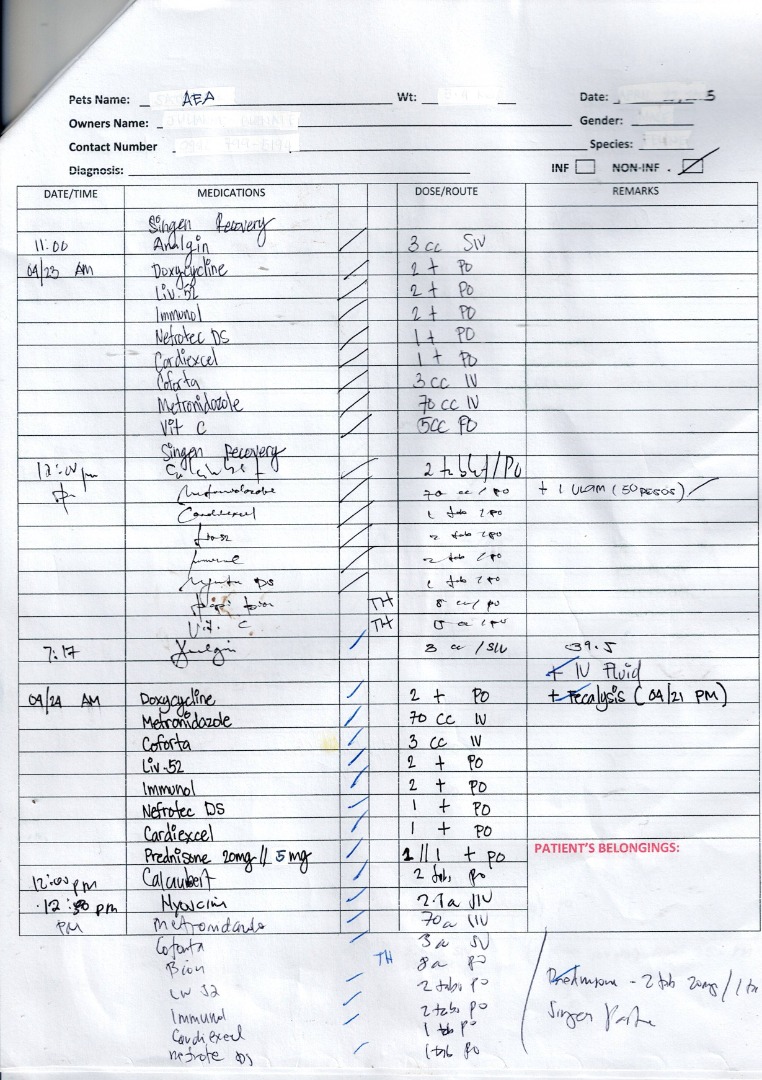 Pets Name: AEA Wt: Date: 5
Owners Name: Gender:
Contact Number Species:
Diagnosis: INF NON-INF.
DATE/TIME MEDICATIONS DOSE/ROUTE REMARKS
Singen Recovery
11:00 Analgin 3 cc SIV
04/23 AM Doxycycline 2 t PO
Liv.52 2 t PO
Immunol 2 t PO
Nefrotec DS 1 t PO
Cardiexcel 1 t PO
Coforta 3 cc IV
Metronidazole 70 cc IV
Vit C 5cc PO
Singen Recovery
12:00 pm 2 tablet/PO
70 cc / PO + 1 ULAM (50 PESOS)
Cardiexcel 1 tab / PO
2 tab / PO
2 tab / PO
DS 1 tab / PO
TH 8 cc / PO
Vit. C TH
7:17 3 cc / SIV 39.5
+ IV Fluid
04/24 AM Doxycycline 2 t PO + Fecalysis (04/21 PM)
Metronidazole 70 cc IV
Coforta 3 cc IV
Liv.52 2 t PO
Immunol 2 t PO
Nefrotec DS 1 t PO
Cardiexcel 1 t PO
Prednisone 20mg // 5mg 1 // 1 t PO PATIENT'S BELONGINGS:
12:00 pm 2 tab PO
12:30 pm Hyoscin SIV
PM 70
Coforta 3
Bion TH 8 PO
Liv 52 2 tabs PO
Immunol 2 tabs PO
Cardiexcel 1 tab PO
DS 1 tab PO
- 2 tab 20mg /
Singen